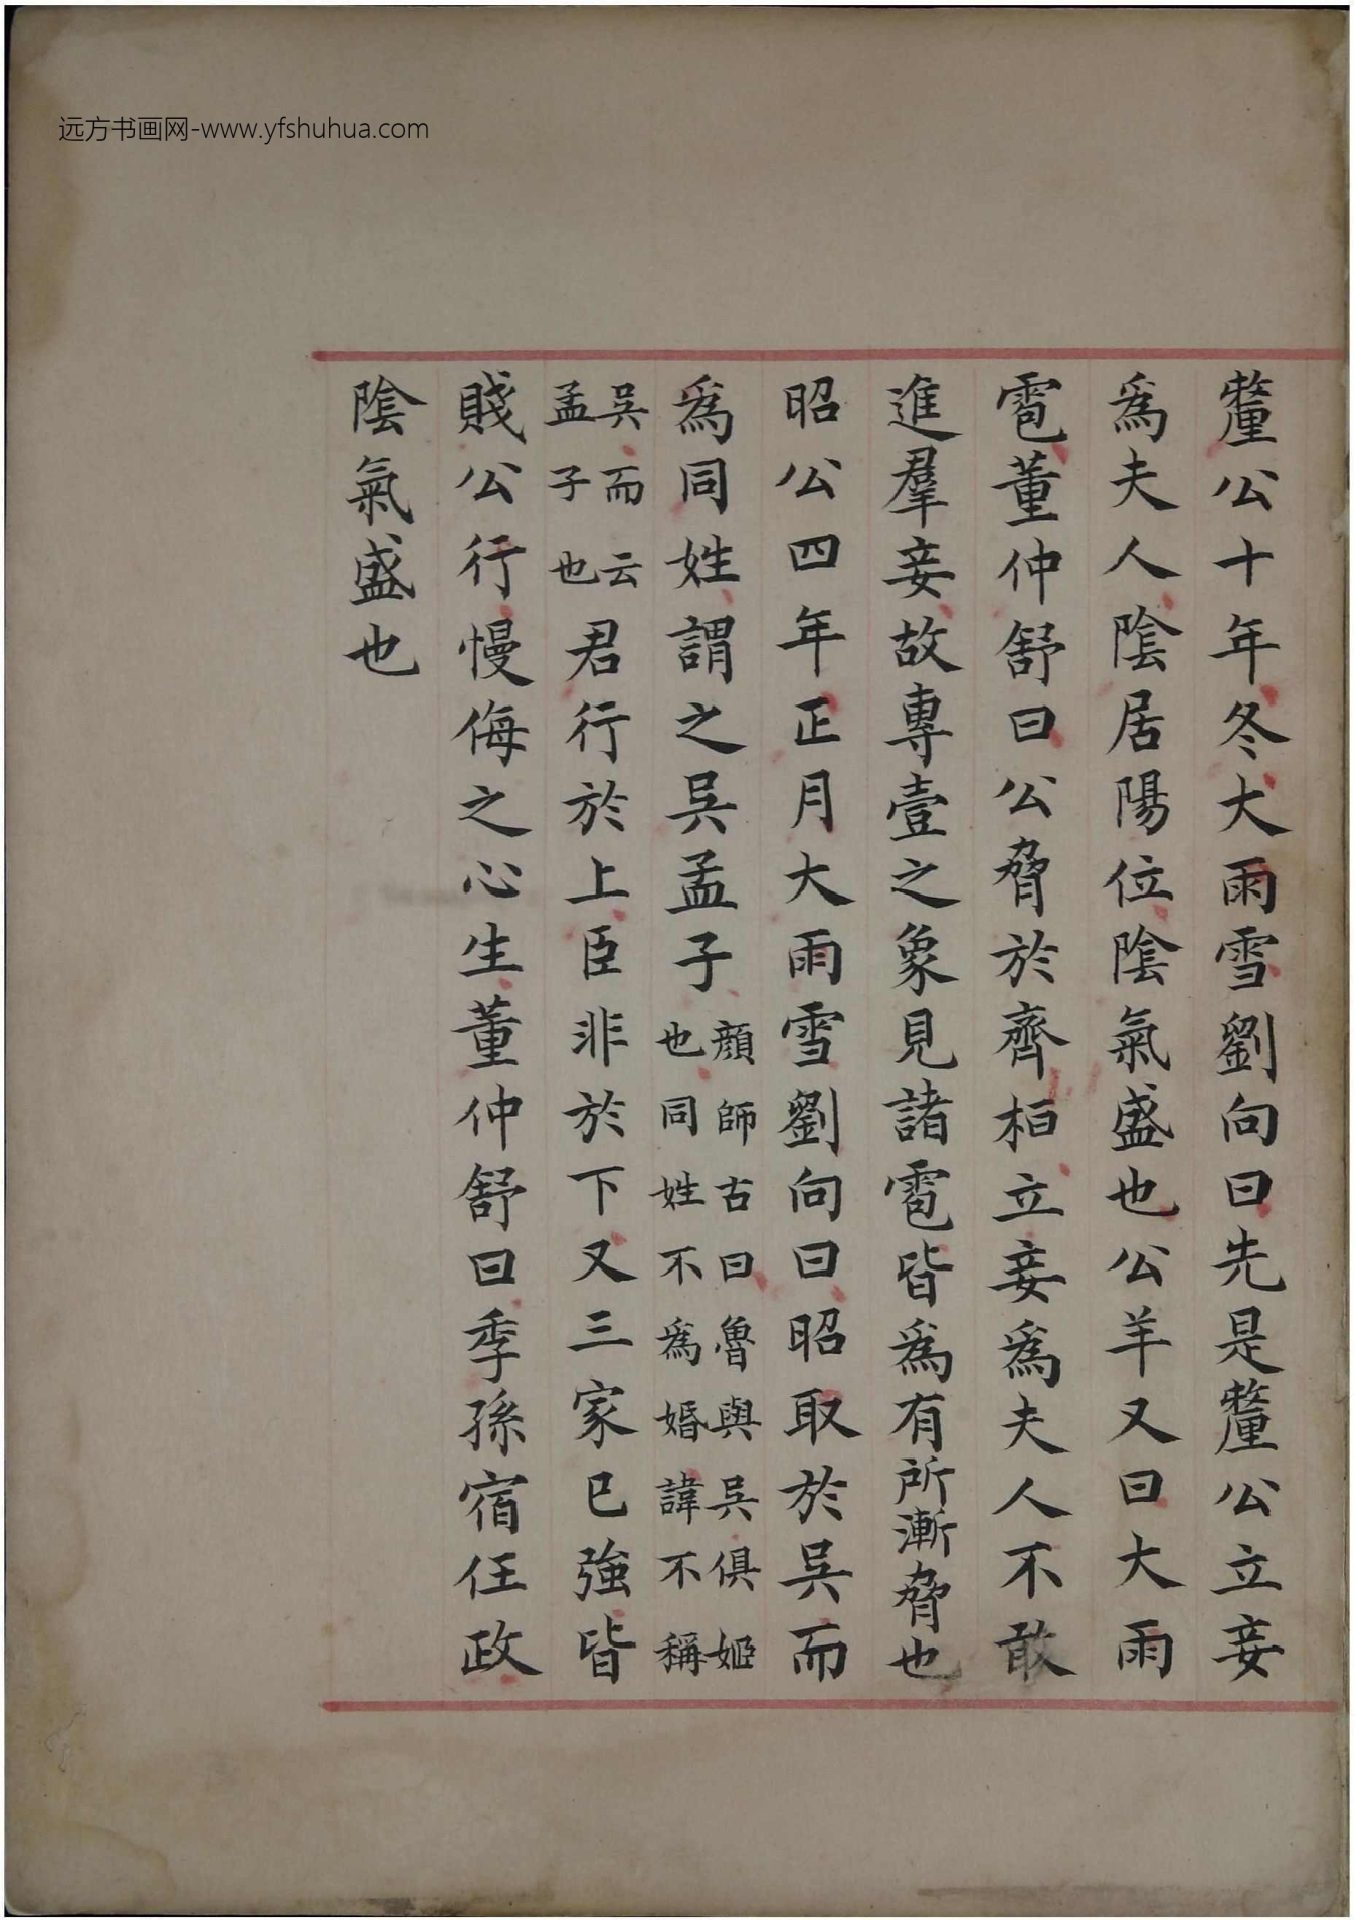 远方书画网-www.yfshuhua.com
釐公十年冬大雨雪劉向曰先是釐公立妾
為夫人陰居陽位陰氣盛也公羊又曰大雨
雹董仲舒曰公脅於齊桓立妾為夫人不敢
進羣妾故專壹之象見諸雹皆為有所漸脅也
昭公四年正月大雨雪劉向曰昭取於吳而
為同姓謂之吳孟子顏師古曰魯與吳俱姬也同姓不為婚諱不稱
吳而云孟子也君行於上臣非於下又三家已強皆
賤公行慢侮之心生董仲舒曰季孫宿任政
陰氣盛也